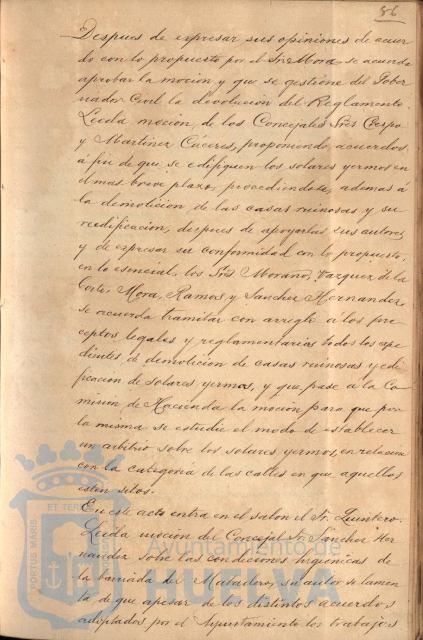 56
Despues de expresar sus opiniones de acuer
do con lo propuesto por el Sr. Mora se acuerda
aprobar la mocion y que se gestione del Gober
nador Civil la devolucion del Reglamento.
Leida mocion de los Concejales Sres Crespo
y Martinez Cáceres, proponiendo acuerdos
á fin de que se edifiquen los solares yermos en
el mas breve plazo, procediendose, ademas á
la demolicion de las casas ruinosas y su
reedificacion, despues de apoyarlas sus autores
y de expresar su conformidad con lo propuesto,
en lo esencial, los Sres Morano, Vazquez de la
Corte, Mora, Ramos, y Sanchez Hernandez,
se acuerda tramitar con arreglo á los pre
ceptos legales y reglamentarios todos los espe
dientes de demolicion de casas ruinosas y edi
ficacion de solares yermos, y que pase á la Co
mision de Hacienda la mocion para que por
la misma se estudie el modo de establecer
un arbitrio sobre los solares yermos, en relacion
con la categoria de las calles en que aquellos
esten sitos.
En este acto entra en el salon el Sr. Quintero.
Leida mocion del Concejal Sr. Sánchez Her
nandez sobre las condiciones higienicas de
la barriada del Matadero, su autor se lamen
ta de que apesar de los distintos acuerdos
adoptados por el Ayuntamiento los trabajos
PORTUS MARIS ET TERRE
Ayuntamiento de
HUELVA